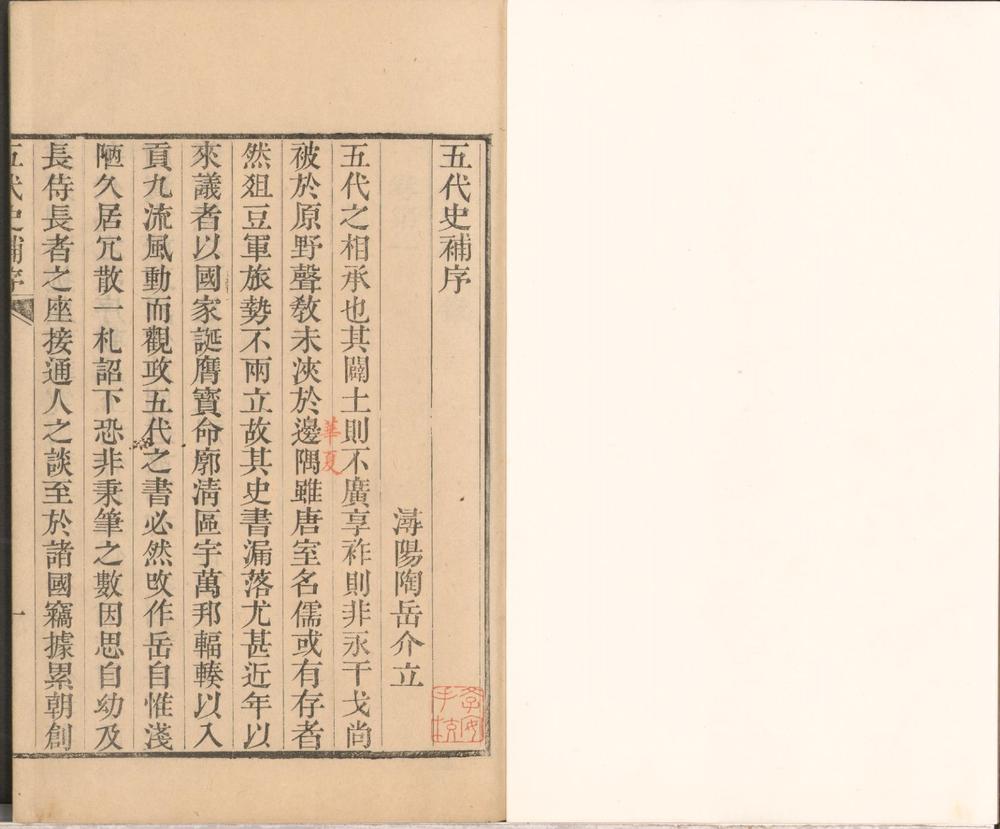 五代史補序
潯陽陶岳介立
五代之相承也其闢土則不廣享祚則非永干戈尚
華夏
被於原野聲敎未浹於邊隅雖唐室名儒或有存者
然俎豆軍旅勢不兩立故其史書漏落尤甚近年以
來議者以國家誕膺寶命廓淸區宇萬邦輻輳以入
貢九流風動而觀政五代之書必然攺作岳自惟淺
陋久居冗散一札詔下恐非秉筆之數因思自幼及
長侍長者之座接通人之談至於諸國竊據累朝創
五代史補序
一